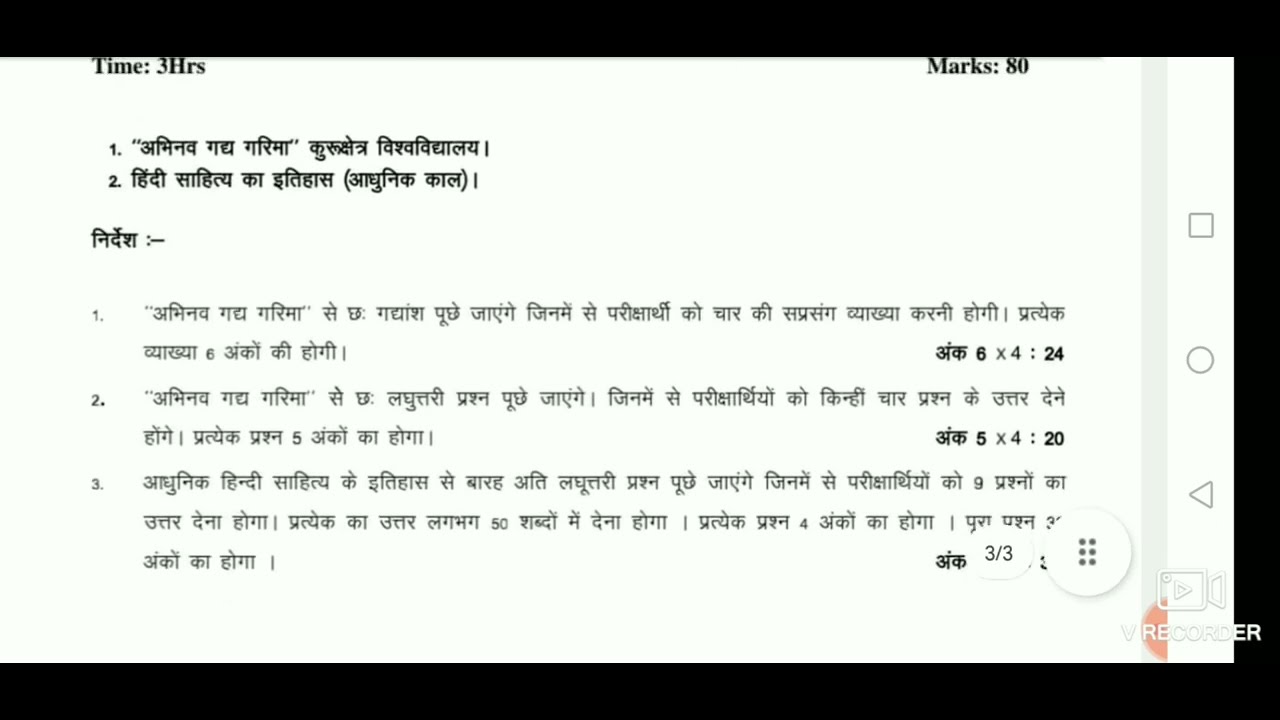 Time: 3Hrs Marks: 80
1. "अभिनव गद्य गरिमा" कुरूक्षेत्र विश्वविद्यालय।
2. हिंदी साहित्य का इतिहास (आधुनिक काल)।
निर्देश :–
1. "अभिनव गद्य गरिमा" से छः गद्यांश पूछे जाएंगे जिनमें से परीक्षार्थी को चार की सप्रसंग व्याख्या करनी होगी। प्रत्येक
व्याख्या 6 अंकों की होगी। अंक 6 x 4 : 24
2. "अभिनव गद्य गरिमा" से छः लघुत्तरी प्रश्न पूछे जाएंगे। जिनमें से परीक्षार्थियों को किन्हीं चार प्रश्न के उत्तर देने
होंगे। प्रत्येक प्रश्न 5 अंकों का होगा। अंक 5 x 4 : 20
3. आधुनिक हिन्दी साहित्य के इतिहास से बारह अति लघूत्तरी प्रश्न पूछे जाएंगे जिनमें से परीक्षार्थियों को 9 प्रश्नों का
उत्तर देना होगा। प्रत्येक का उत्तर लगभग 50 शब्दों में देना होगा । प्रत्येक प्रश्न 4 अंकों का होगा ।
अंकों का होगा । अंक
3/3
V RECORDER